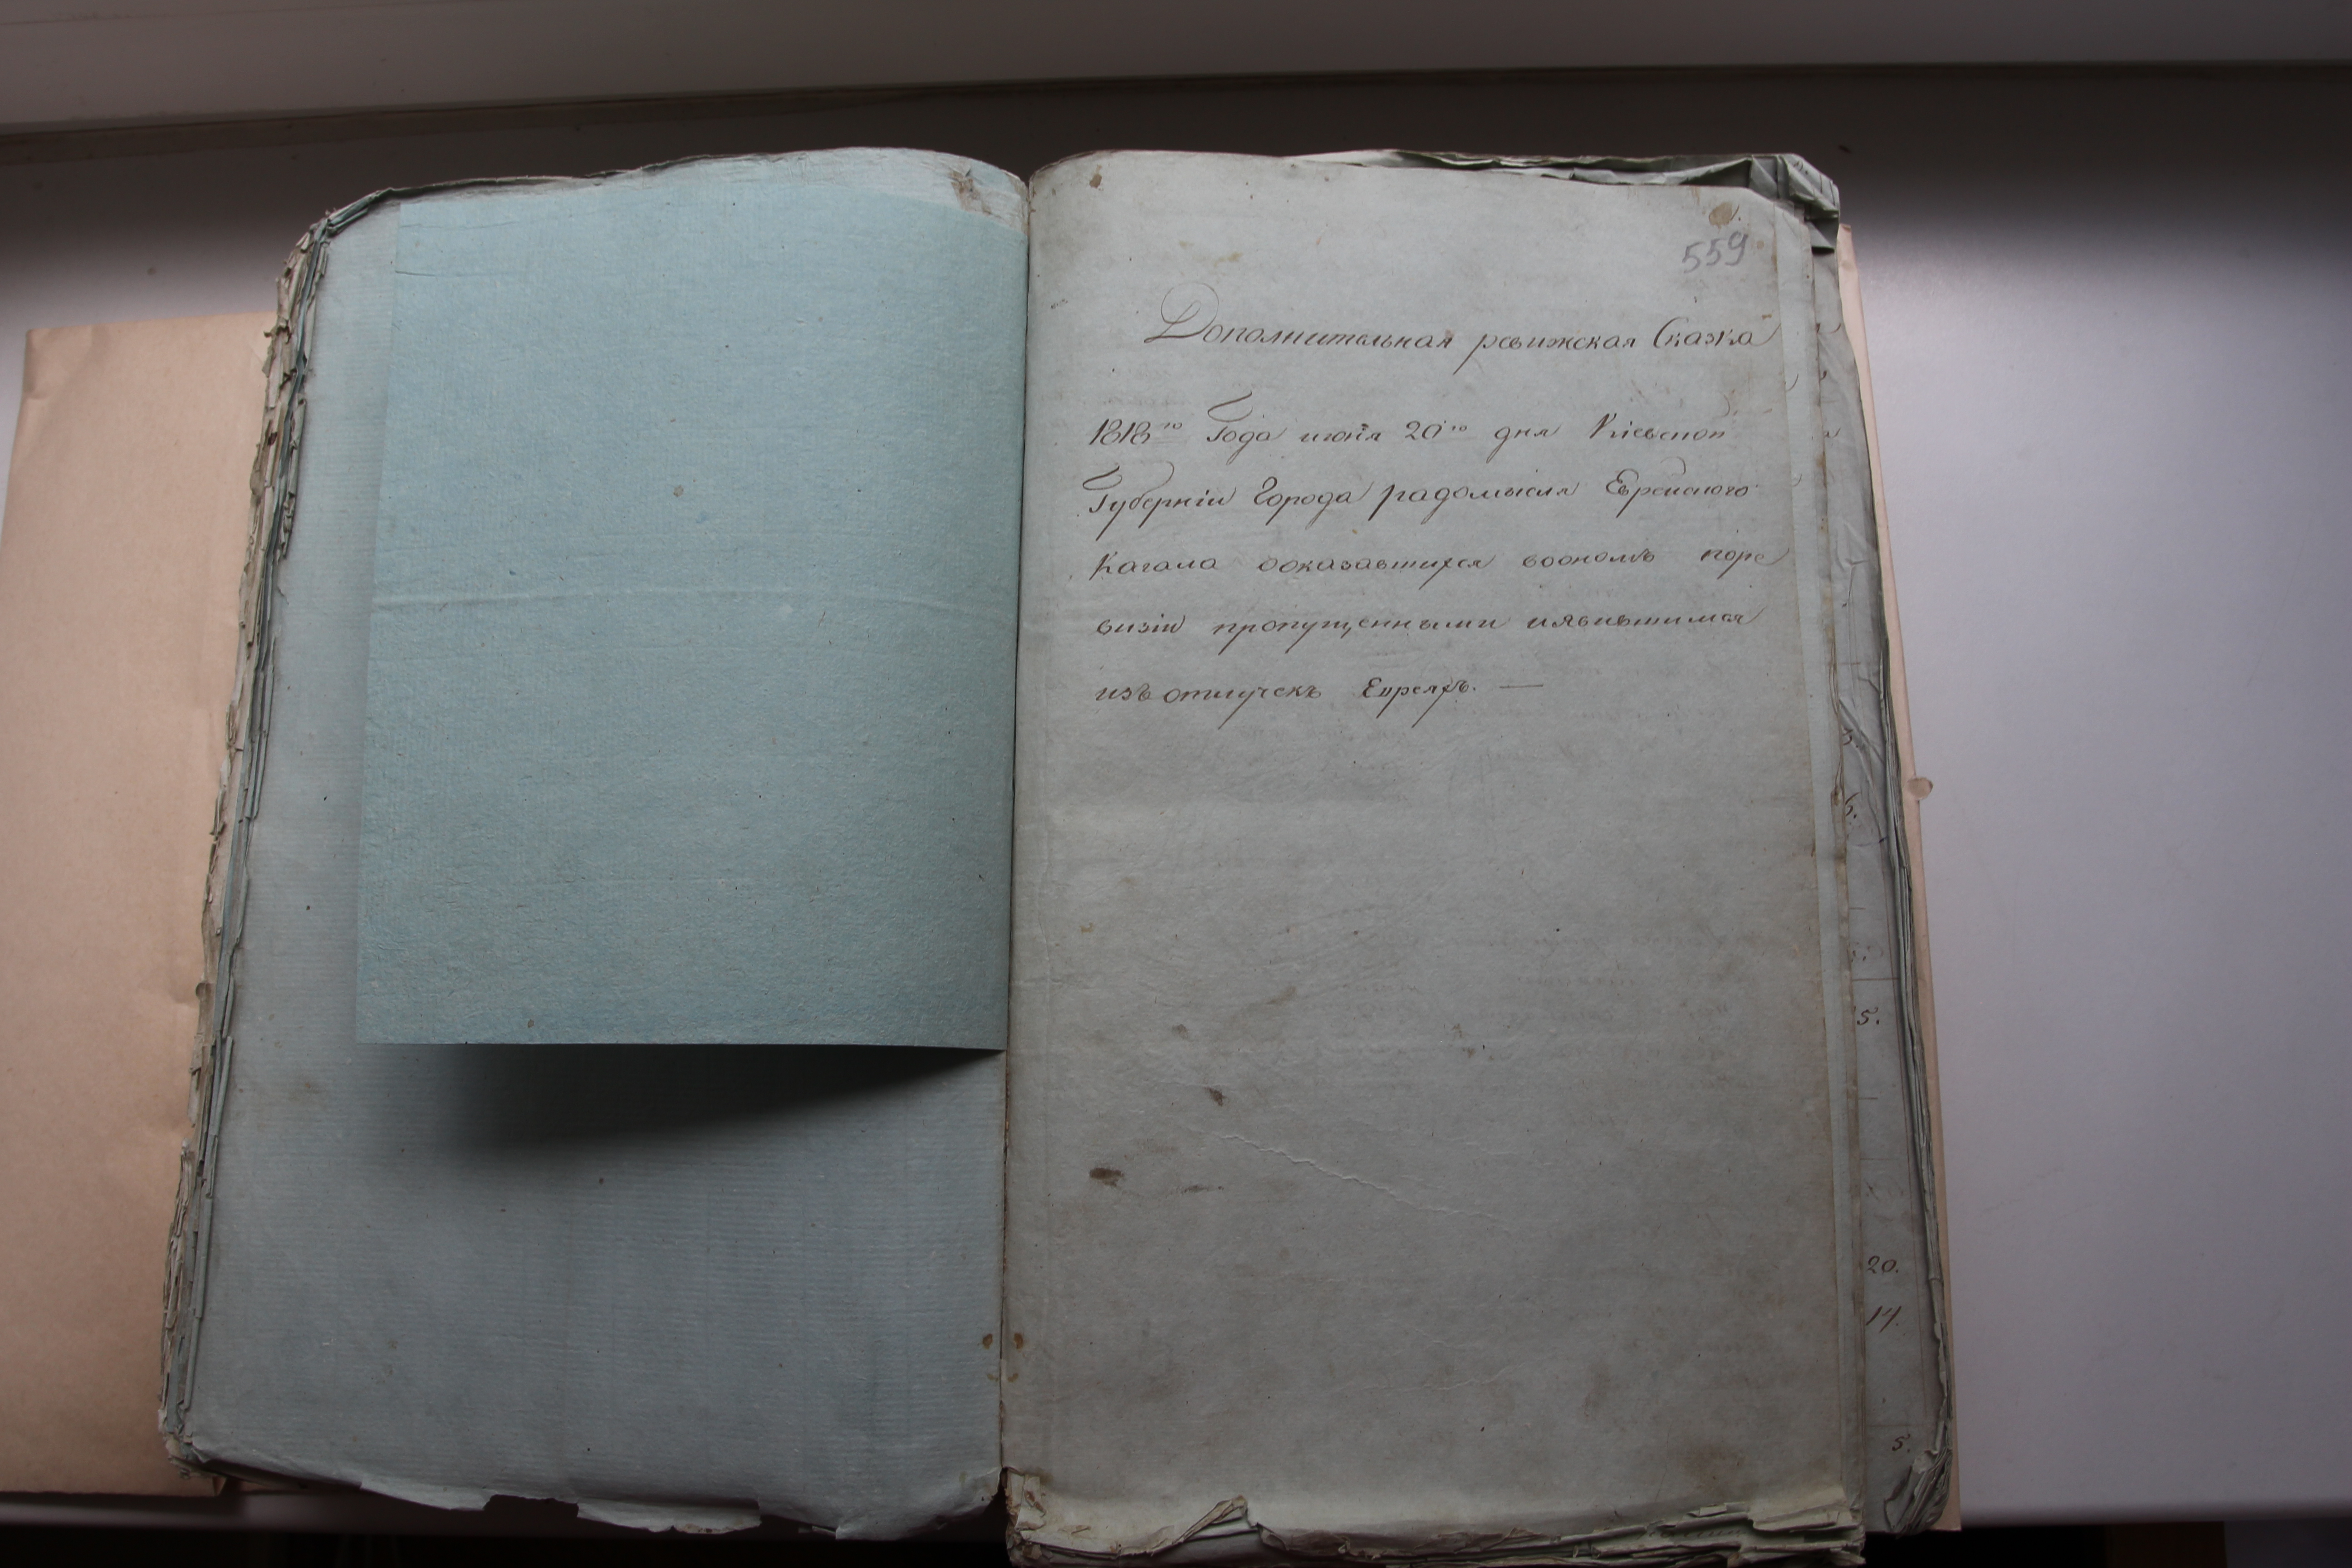 559
Дополнительная ревижская Сказка
1818го Года июня 20го дня Кіевской
Губерніи Города радомысля Еврейского
Кагала ооказавшихся воономъ поре
визіи пропущенными иявившимися
изъ отлучекъ Евреяхъ. —
5.
20.
17.
5.